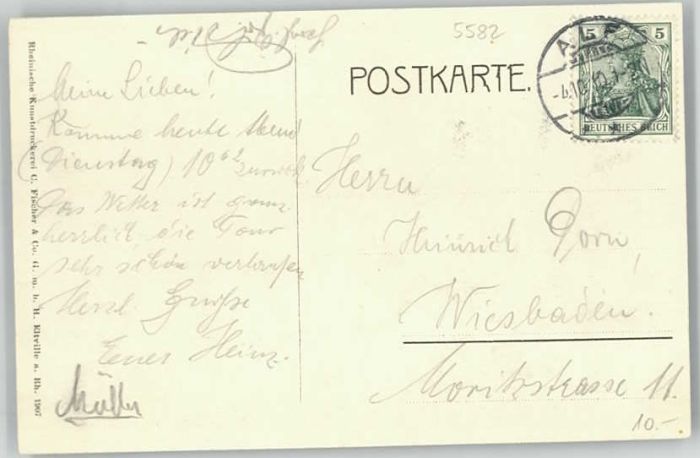 5582
POSTKARTE.
5 5
DEUTSCHES REICH
Meine Lieben!
Komme heute Abend
(Dienstag) 10⁰² zurück.
Das Wetter ist ganz
herrlich die Tour
sehr schön verlaufen
Herzl. Grüße
Euer Heinz.
Müller
Herrn
Heinrich Dorn,
Wiesbaden.
Moritzstrasse 11.
10.-
Rheinische Kunstdruckerei C. Fischer & Co. G. m. b. H. Eltville a. Rh. 1907